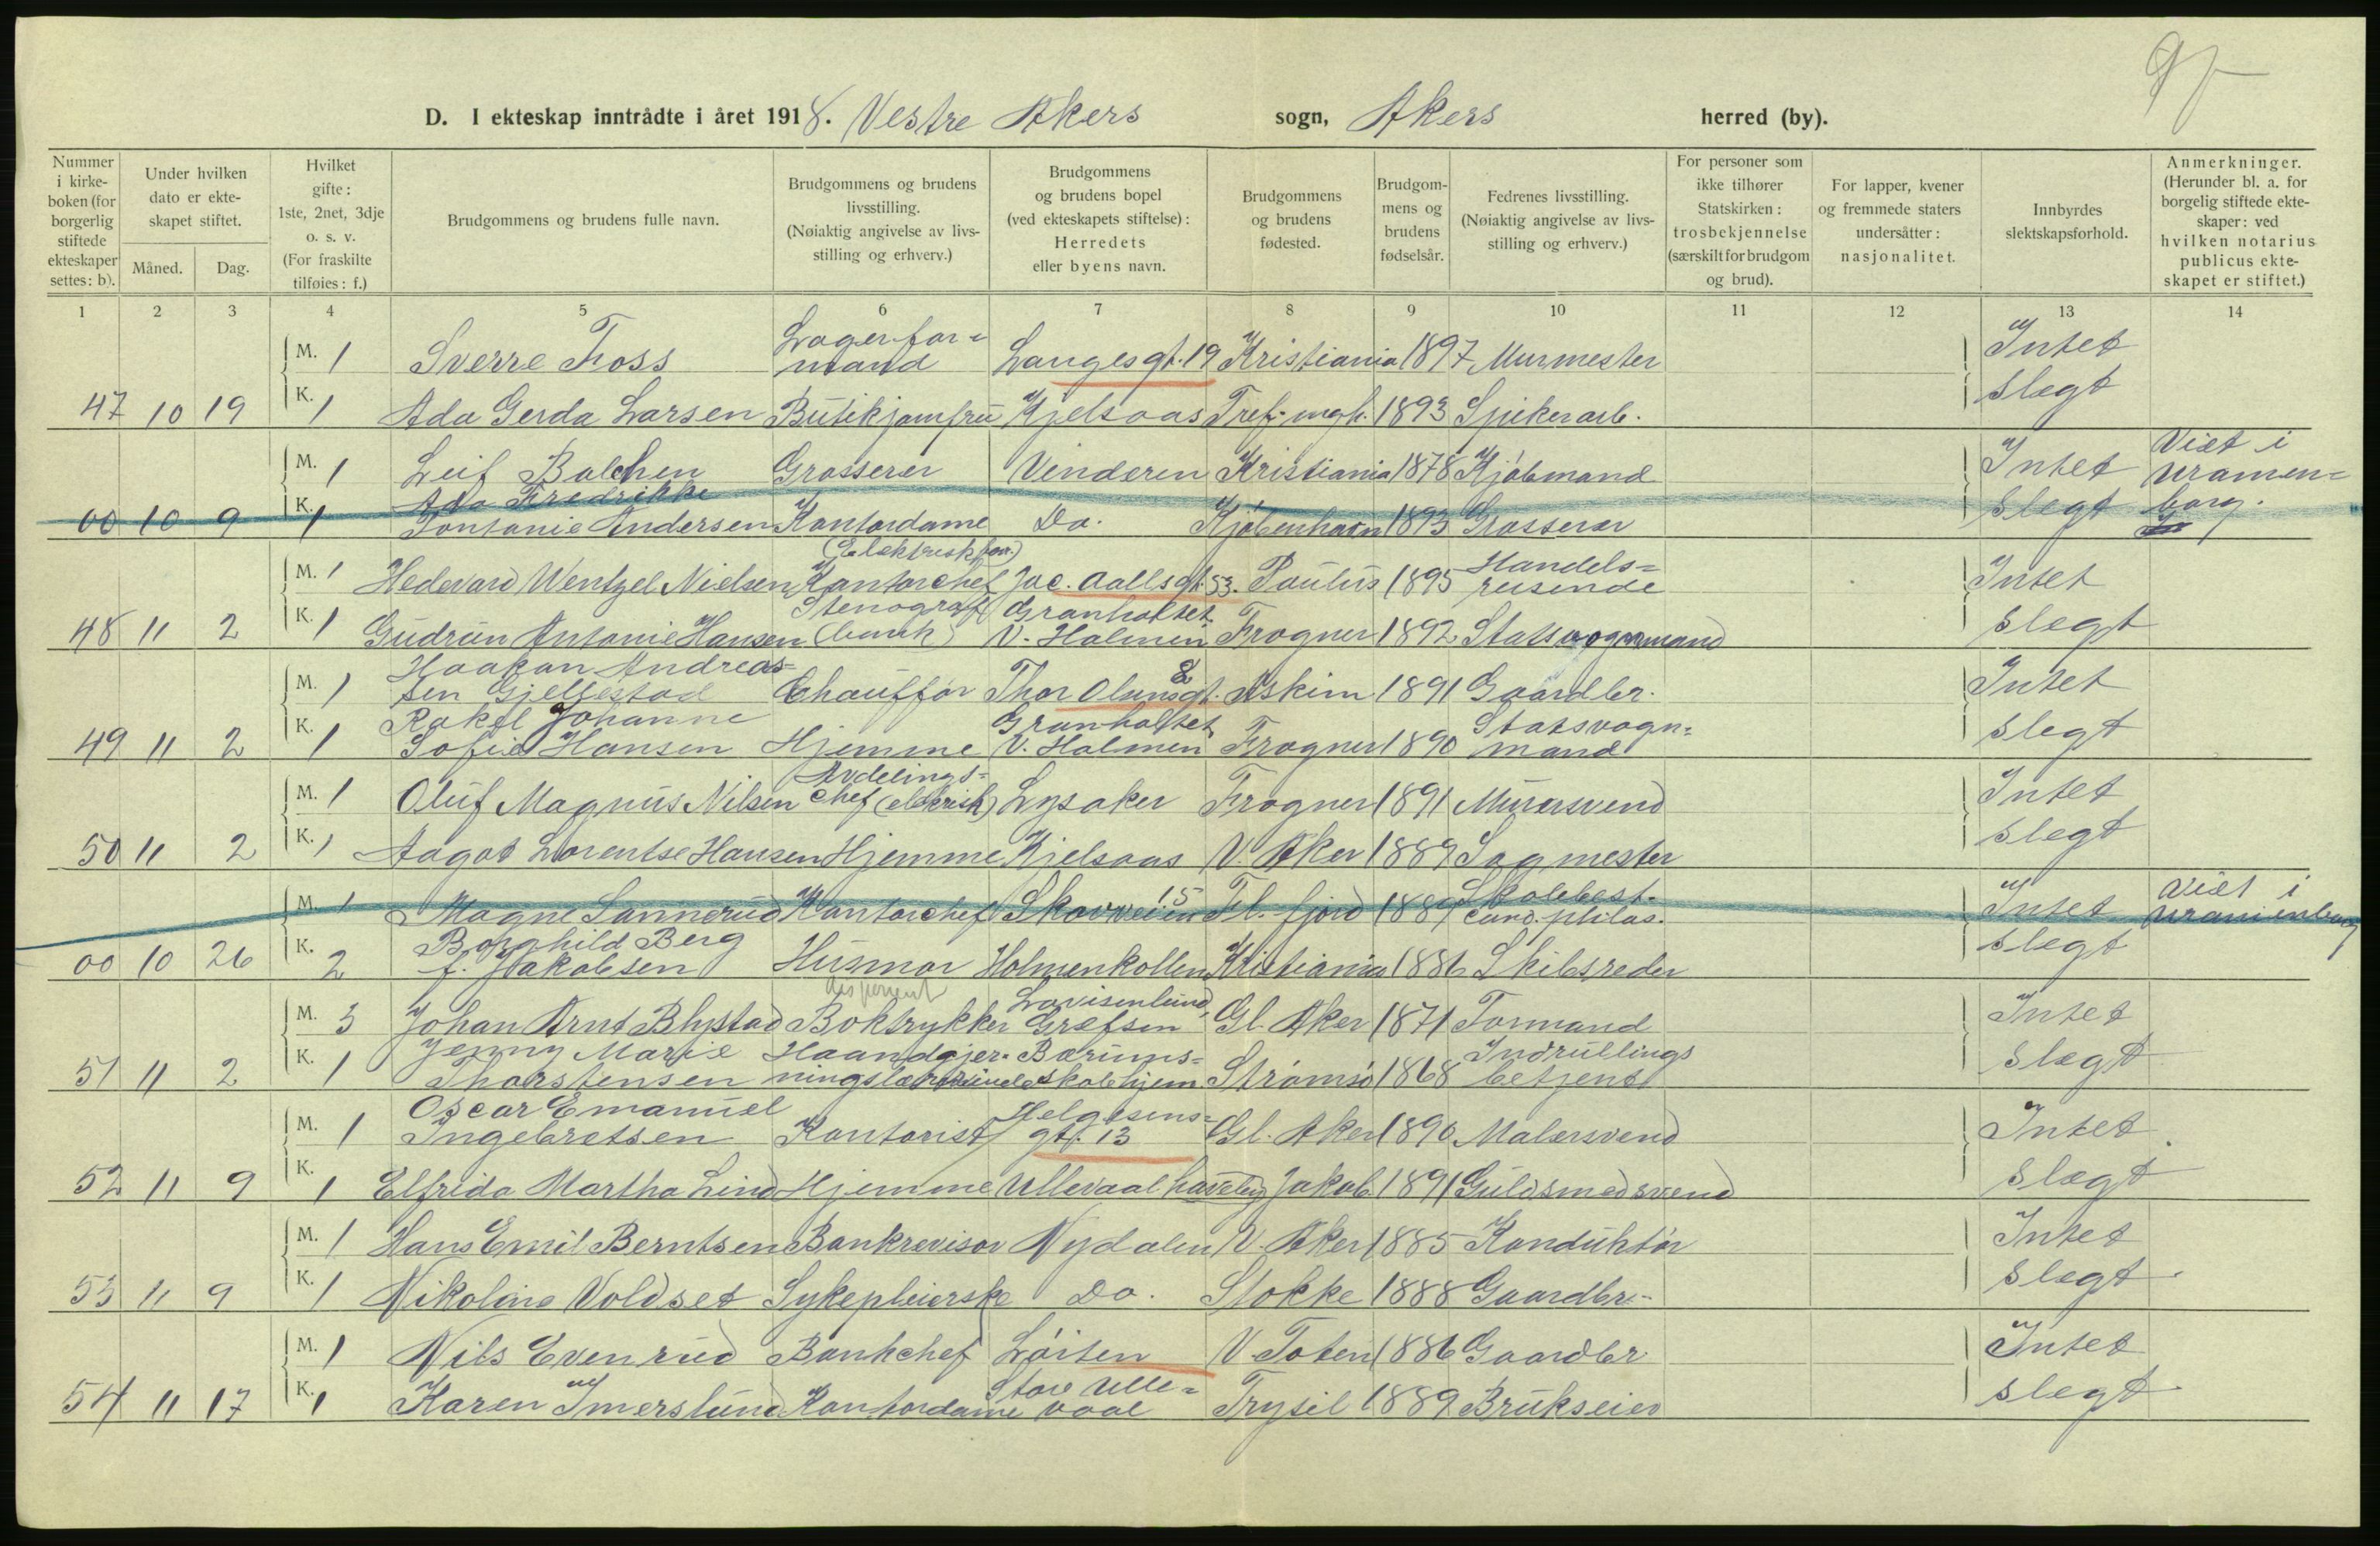 D. I ekteskap inntrådte i året 1918. Vestre Akers sogn, Akers herred (by).
Nummer i kirkeboken (for borgerlig stiftede ekteskaper settes: b).
Under hvilken dato er ekteskapet stiftet.
Måned. Dag.
Hvilket gifte: 1ste, 2net, 3dje o. s. v. (For fraskilte tilføies: f.)
Brudgommens og brudens fulle navn.
Brudgommens og brudens livsstilling. (Nøiaktig angivelse av livsstilling og erhverv.)
Brudgommens og brudens bopel (ved ekteskapets stiftelse): Herredets eller byens navn.
Brudgommens og brudens fødested.
Brudgommens og brudens fødselsår.
Fedrenes livsstilling. (Nøiaktig angivelse av livsstilling og erhverv.)
For personer som ikke tilhører Statskirken: trosbekjennelse (særskilt for brudgom og brud).
For lapper, kvener og fremmede staters undersåtter: nasjonalitet.
Innbyrdes slektskapsforhold.
Anmerkninger. (Herunder bl. a. for borgelig stiftede ekteskaper: ved hvilken notarius publicus ekteskapet er stiftet.)
1 2 3 4 5 6 7 8 9 10 11 12 13 14
M. 1 Sverre Foss Lagerformand Langesgt. 19 Kristiania 1897 Murmester Intet
47 10 19 K. 1 Ada Gerda Larsen Butikjomfru Kjelsaas Tref. mgh. 1893 Spikerarb. Slegt
M. 1 Leif Balchen Grosserer Vinderen Kristiania 1878 Kjøbmand Intet Viet i Uranien=
00 10 9 K. 1 Ada Fredrikke Tontanie Andersen Kontordame Do. Kjøbenhavn 1893 Grosserer Slegt borg.
M. 1 Hedevard Wentzel Nielsen Kontorchef (Elektrisk forr.) Jac. Aallsgt. 53. Paulus 1895 Handels=reisende Intet
48 11 2 K. 1 Gudrun Antonie Hansen Stenograf (bank) Granholtet V. Holmen Frogner 1892 Statsvognmand Slegt
M. 1 Haakon Andreas=sen Gjellestad Chauffør Thor Olsensgt. 8 Askim 1891 Gaardbr. Intet
49 11 2 K. 1 Rakel Johanne Sofie Hansen Hjemme Granholtet V. Holmen Frogner 1890 Statsvogn=mand Slegt
M. 1 Oluf Magnus Nilsen Avdelings=chef (elektrisk) Lysaker Frogner 1891 Murersvend Intet
50 11 2 K. 1 Aagot Lorentse Hansen Hjemme Kjelsaas V. Aker 1889 Sagmester Slegt
M. 1 Magne Sannerud Kontorchef Skovveien 15 Fl. fjord 1887 Skolebest. cand. philos. Intet Viet i Uranienborg
00 10 26 K. 2 Borghild Berg f. Jakobsen Husmor Holmenkollen Kristiania 1886 Skibsreder Slegt
M. 3 Johan Arnt Blystad Boktrykker disponent Lovisenlund, Grefsen Gl. Aker 1871 Formand Intet
51 11 2 K. 1 Jenny Marie Thorstensen Haandgjer=ningslærerinde Bærums=skolehjem Strømsø 1868 Indrullings betjent Slegt
M. 1 Oscar Emanuel Ingebretsen Kontorist Helgesens=gt. 13 Gl. Aker 1890 Malersvend Intet
52 11 9 K. 1 Elfrida Martha Lind Hjemme Ullevaal haveby Jakob 1891 Guldsmedsvend Slegt
M. 1 Hans Emil Berntsen Bankrevisor Nydalen V. Aker 1885 Konduktør Intet
53 11 9 K. 1 Nikoline Voldset Sykepleierske Do. Stokke 1888 Gaardbr. Slegt
M. 1 Nils Evenrud Bankchef Løiten V. Toten 1886 Gaardbr Intet
54 11 17 K. 1 Karen Imerslund Kontordame Store Ulle=vaal Trysil 1889 Brukseier Slegt